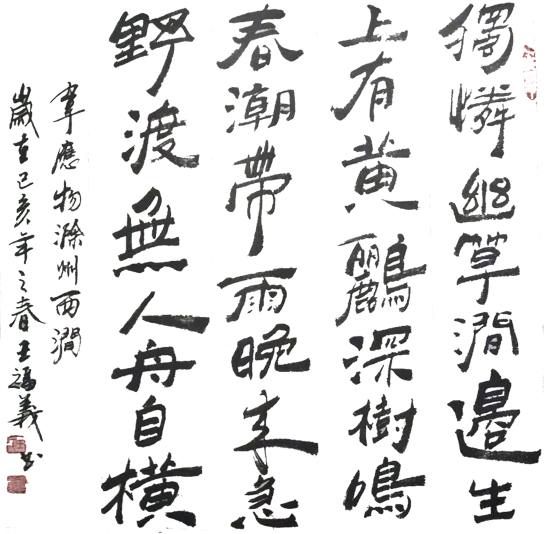 獨憐幽草澗邊生
上有黄鸝深樹鳴
春潮帶雨晚来急
野渡無人舟自橫
韋應物滁州西澗
歲在己亥年之春王福義书